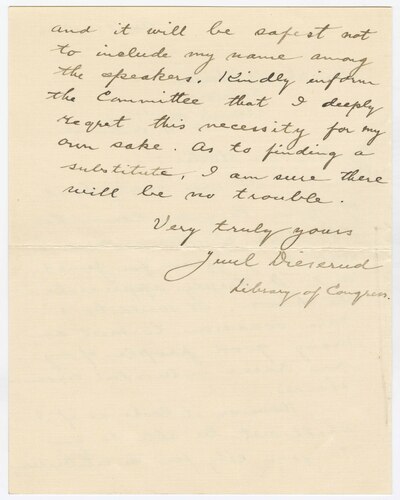 and it will be safest not
to include my name among
the speakers. Kindly inform
the Committee that I deeply
regret this necessity for my
own sake. As to finding a
substitute, I am sure there
will be no trouble.
Very truly yours
Juul Dieserud
Library of Congress.